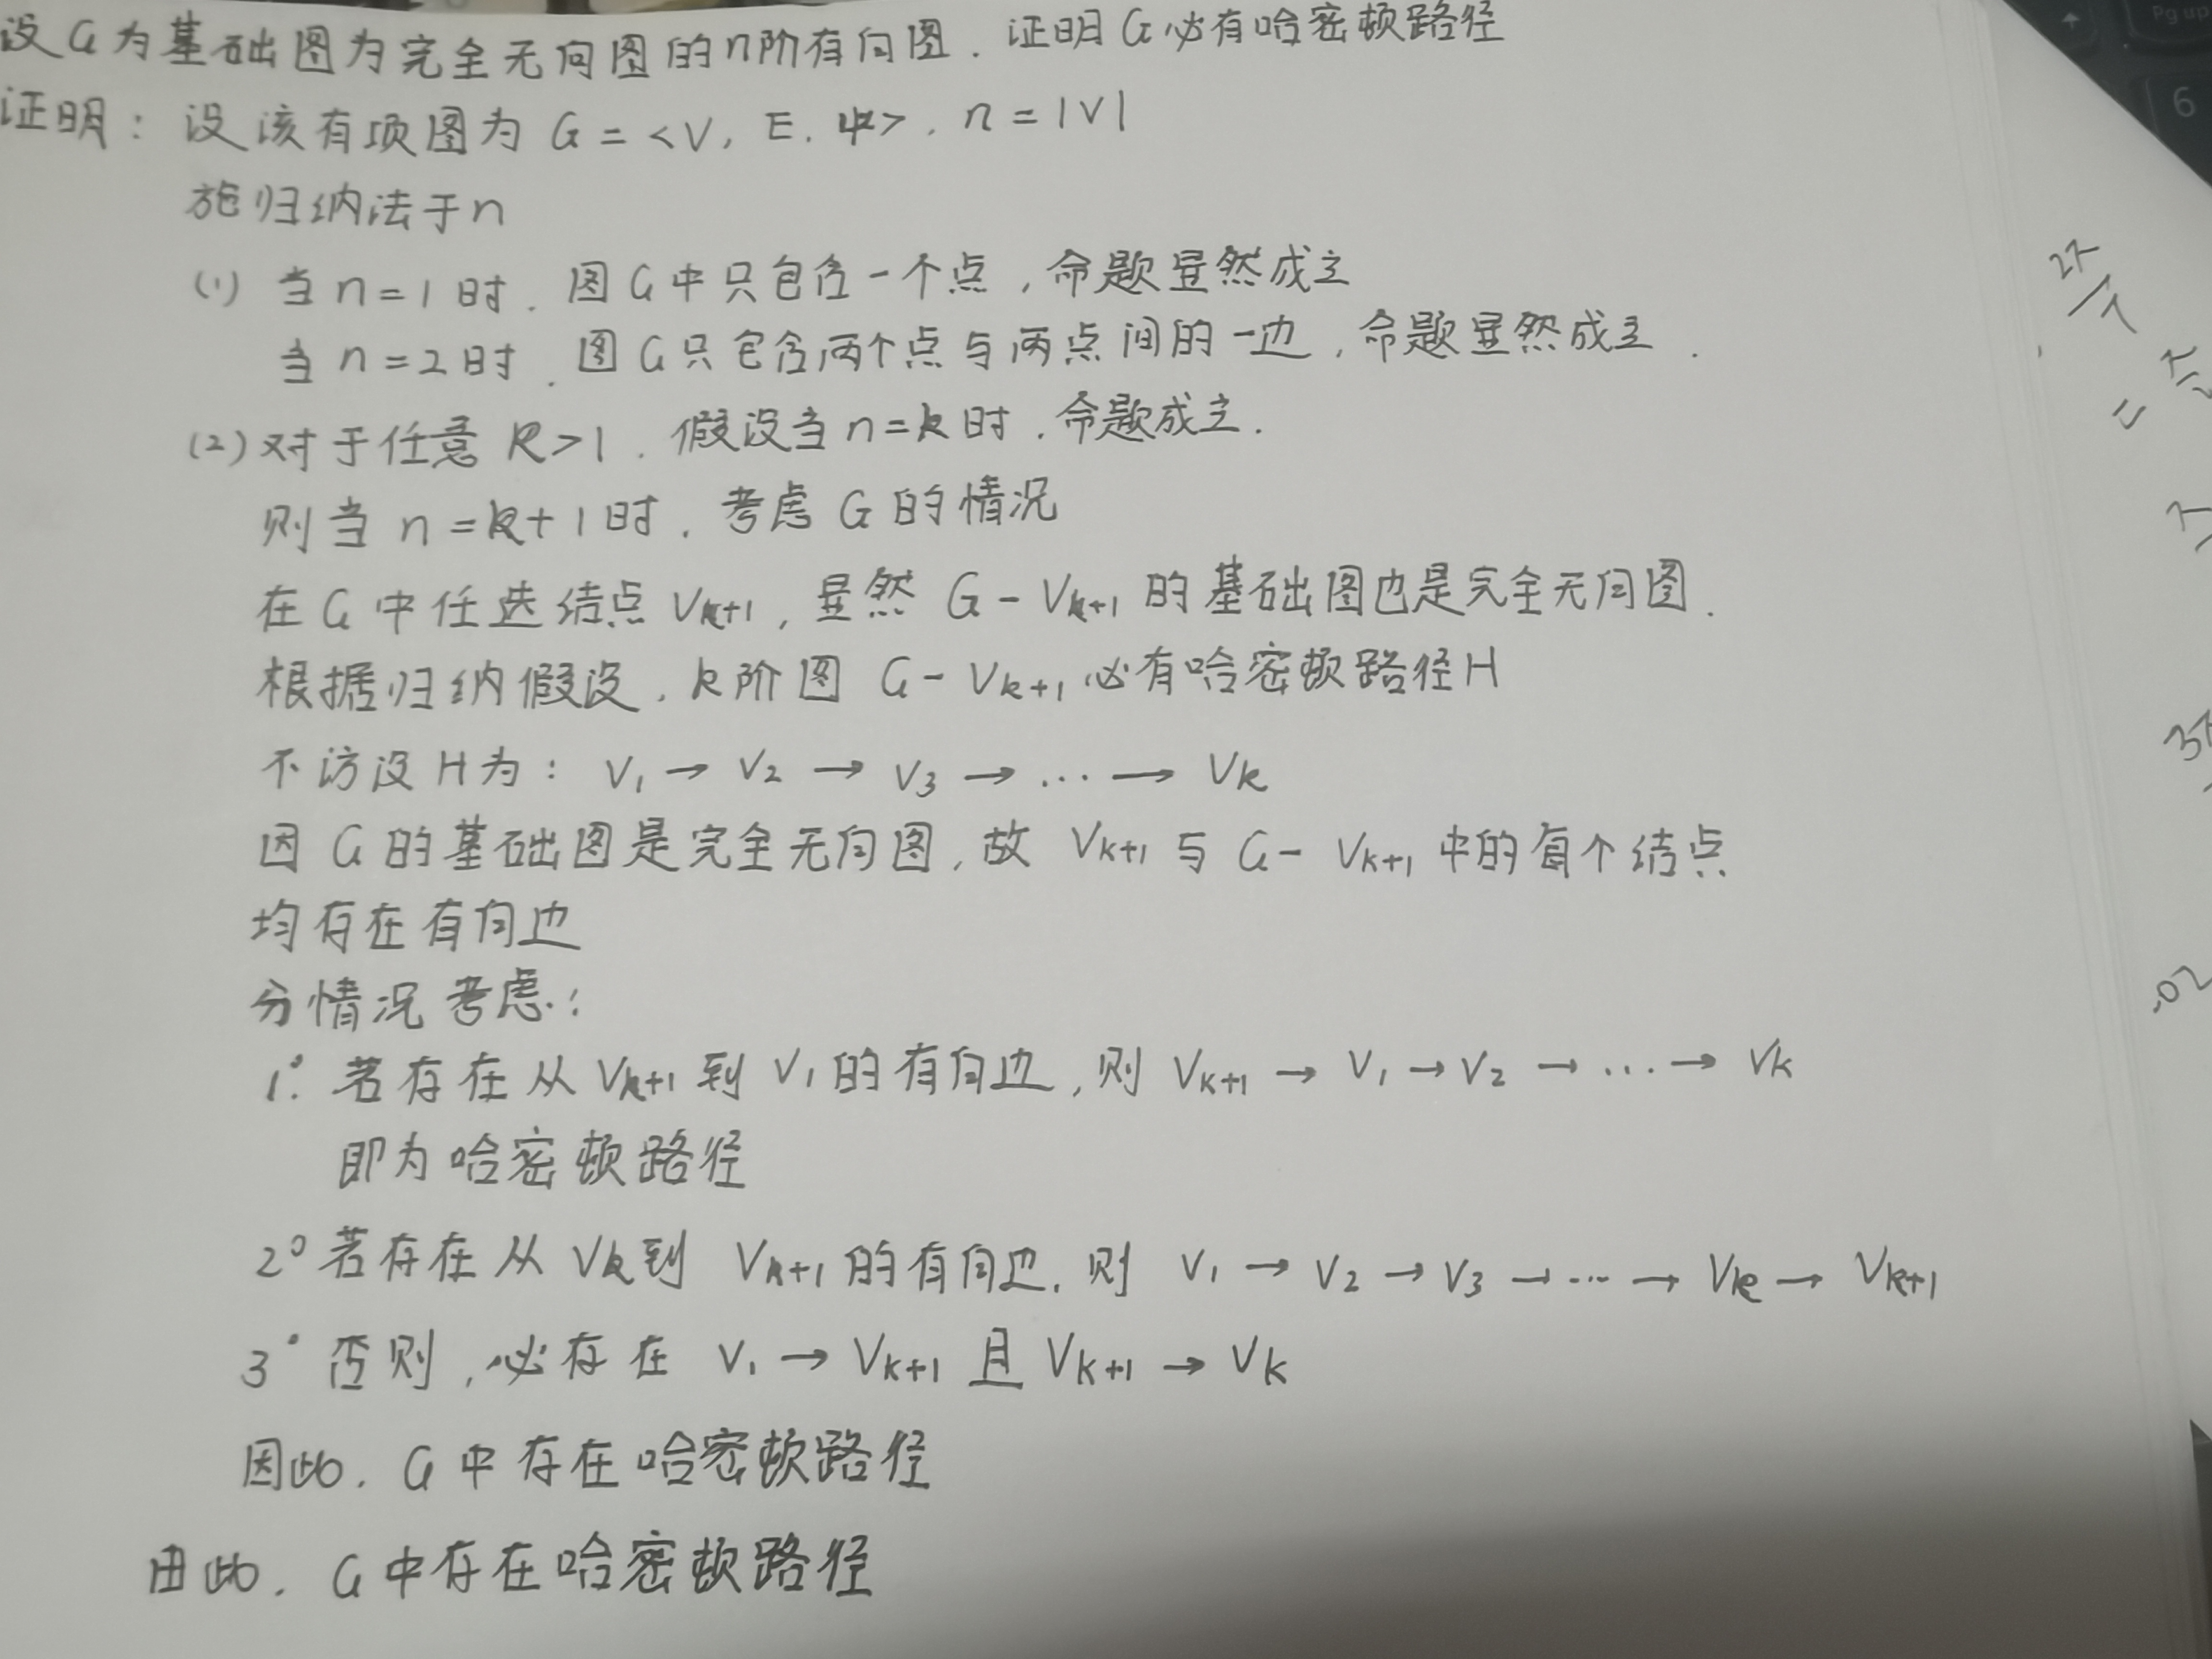 设G为基础图为完全无向图的n阶有向图. 证明G必有哈密顿路径
证明: 设该有项图为 G = <V, E, Ψ>, n = |V|
施归纳法于n
(1) 当 n=1 时. 图G中只包含一个点, 命题显然成立
当 n=2 时. 图G只包含两个点与两点间的一边, 命题显然成立.
(2) 对于任意 k>1. 假设当 n=k 时. 命题成立.
则当 n=k+1时. 考虑 G 的情况
在G中任选结点 Vk+1, 显然 G-Vk+1 的基础图也是完全无向图.
根据归纳假设. k阶图 G-Vk+1 必有哈密顿路径H
不访设H为: V1 → V2 → V3 → ... → Vk
因G的基础图是完全无向图, 故 Vk+1 与 G-Vk+1 中的每个结点
均存在有向边
分情况考虑:
1° 若存在从 Vk+1 到 V1 的有向边, 则 Vk+1 → V1 → V2 → ... → Vk
即为哈密顿路径
2° 若存在从 Vk到 Vk+1 的有向边. 则 V1 → V2 → V3 → ... → Vk → Vk+1
3° 否则, 必存在 V1 → Vk+1 且 Vk+1 → Vk
因此. G中存在哈密顿路径
由此. G中存在哈密顿路径
Pg up
6